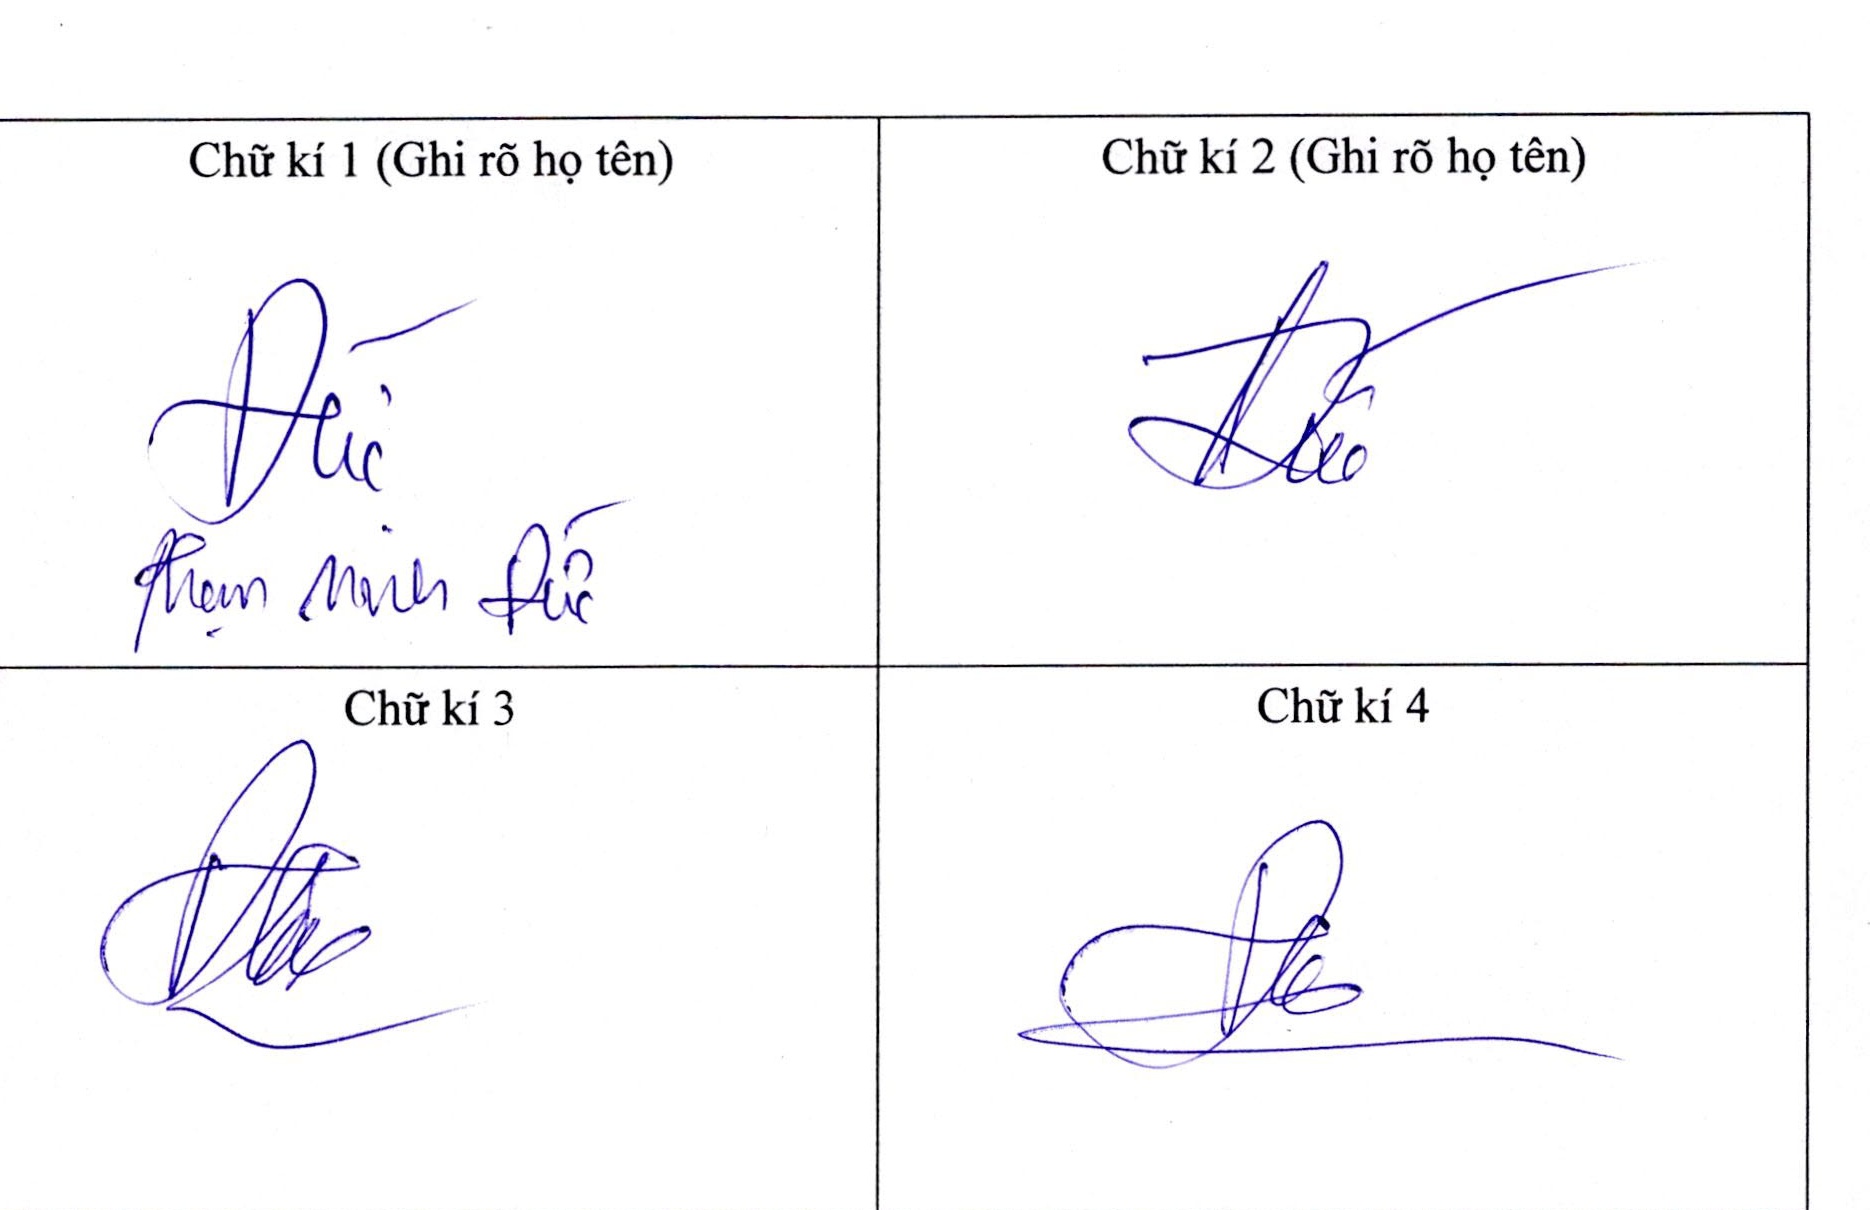 Chữ kí 1 (Ghi rõ họ tên)
Chữ kí 2 (Ghi rõ họ tên)
Đức
Phạm Minh Đức
Chữ kí 3
Chữ kí 4